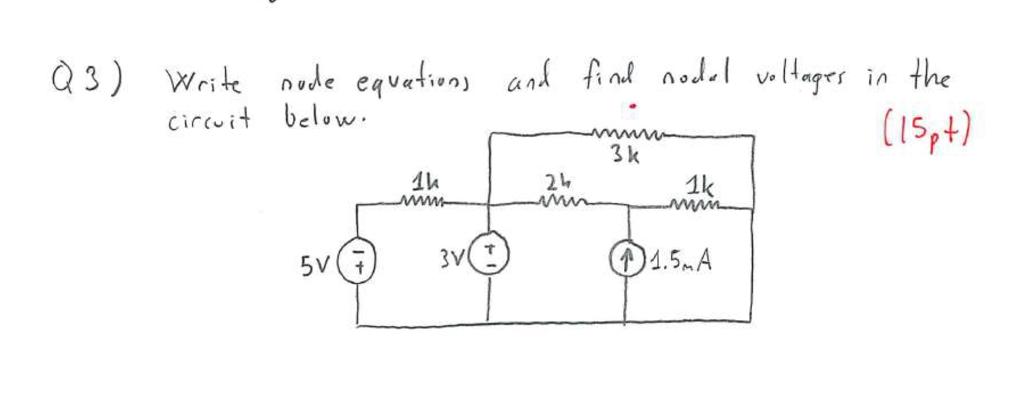 Q3) Write node equations and find nodal voltages in the
circuit below.
(15pt)
3k
1k
2k
1k
5V
- +
3V
+ -
1.5mA